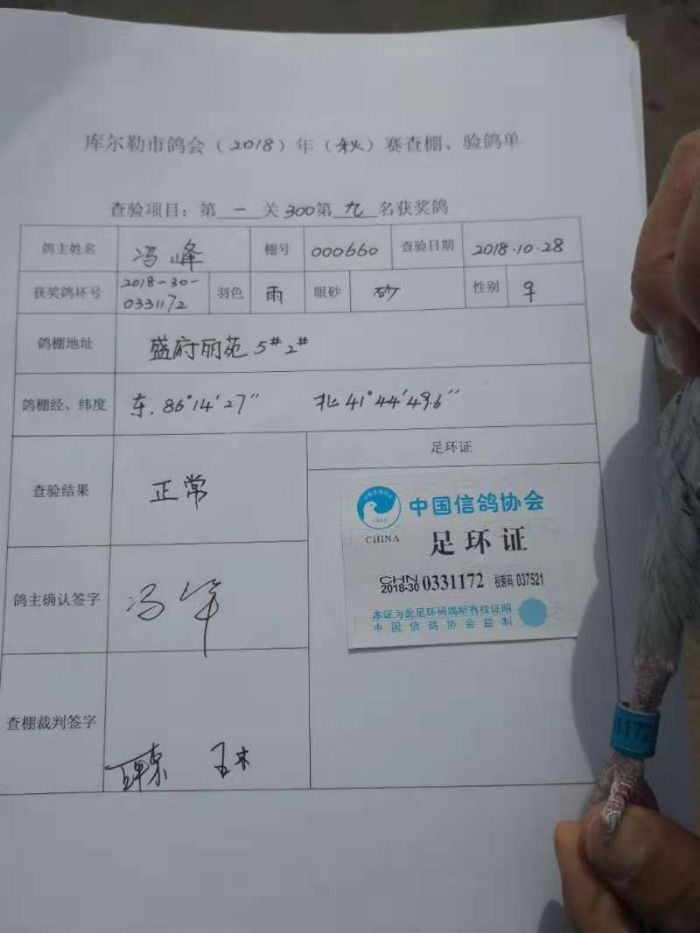 库尔勒市鸽会(2018)年(秋)赛查棚、验鸽单
查验项目:第一关300第九名获奖鸽
鸽主姓名 冯峰 棚号 000660 查验日期 2018.10.28
获奖鸽环号 2018-30-0331172 羽色 雨 眼砂 砂 性别 ♀
鸽棚地址 盛府丽苑5#2#
鸽棚经、纬度 东.86°14′27″ 北41°44′49.6″
查验结果 正常
足环证
中国信鸽协会
CHINA
足环证
CHN
2018-30 0331172 校验码:037521
本证为此足环码鸽所有权证明
中国信鸽协会监制
鸽主确认签字 冯峰
查棚裁判签字
1172